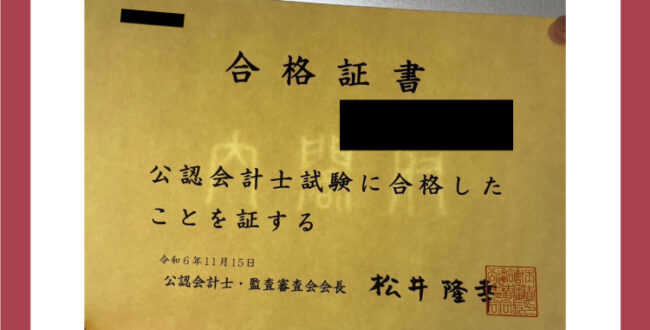 合格証書
公認会計士試験に合格した
ことを証する
令和6年11月15日
公認会計士・監査審査会会長 松井隆幸